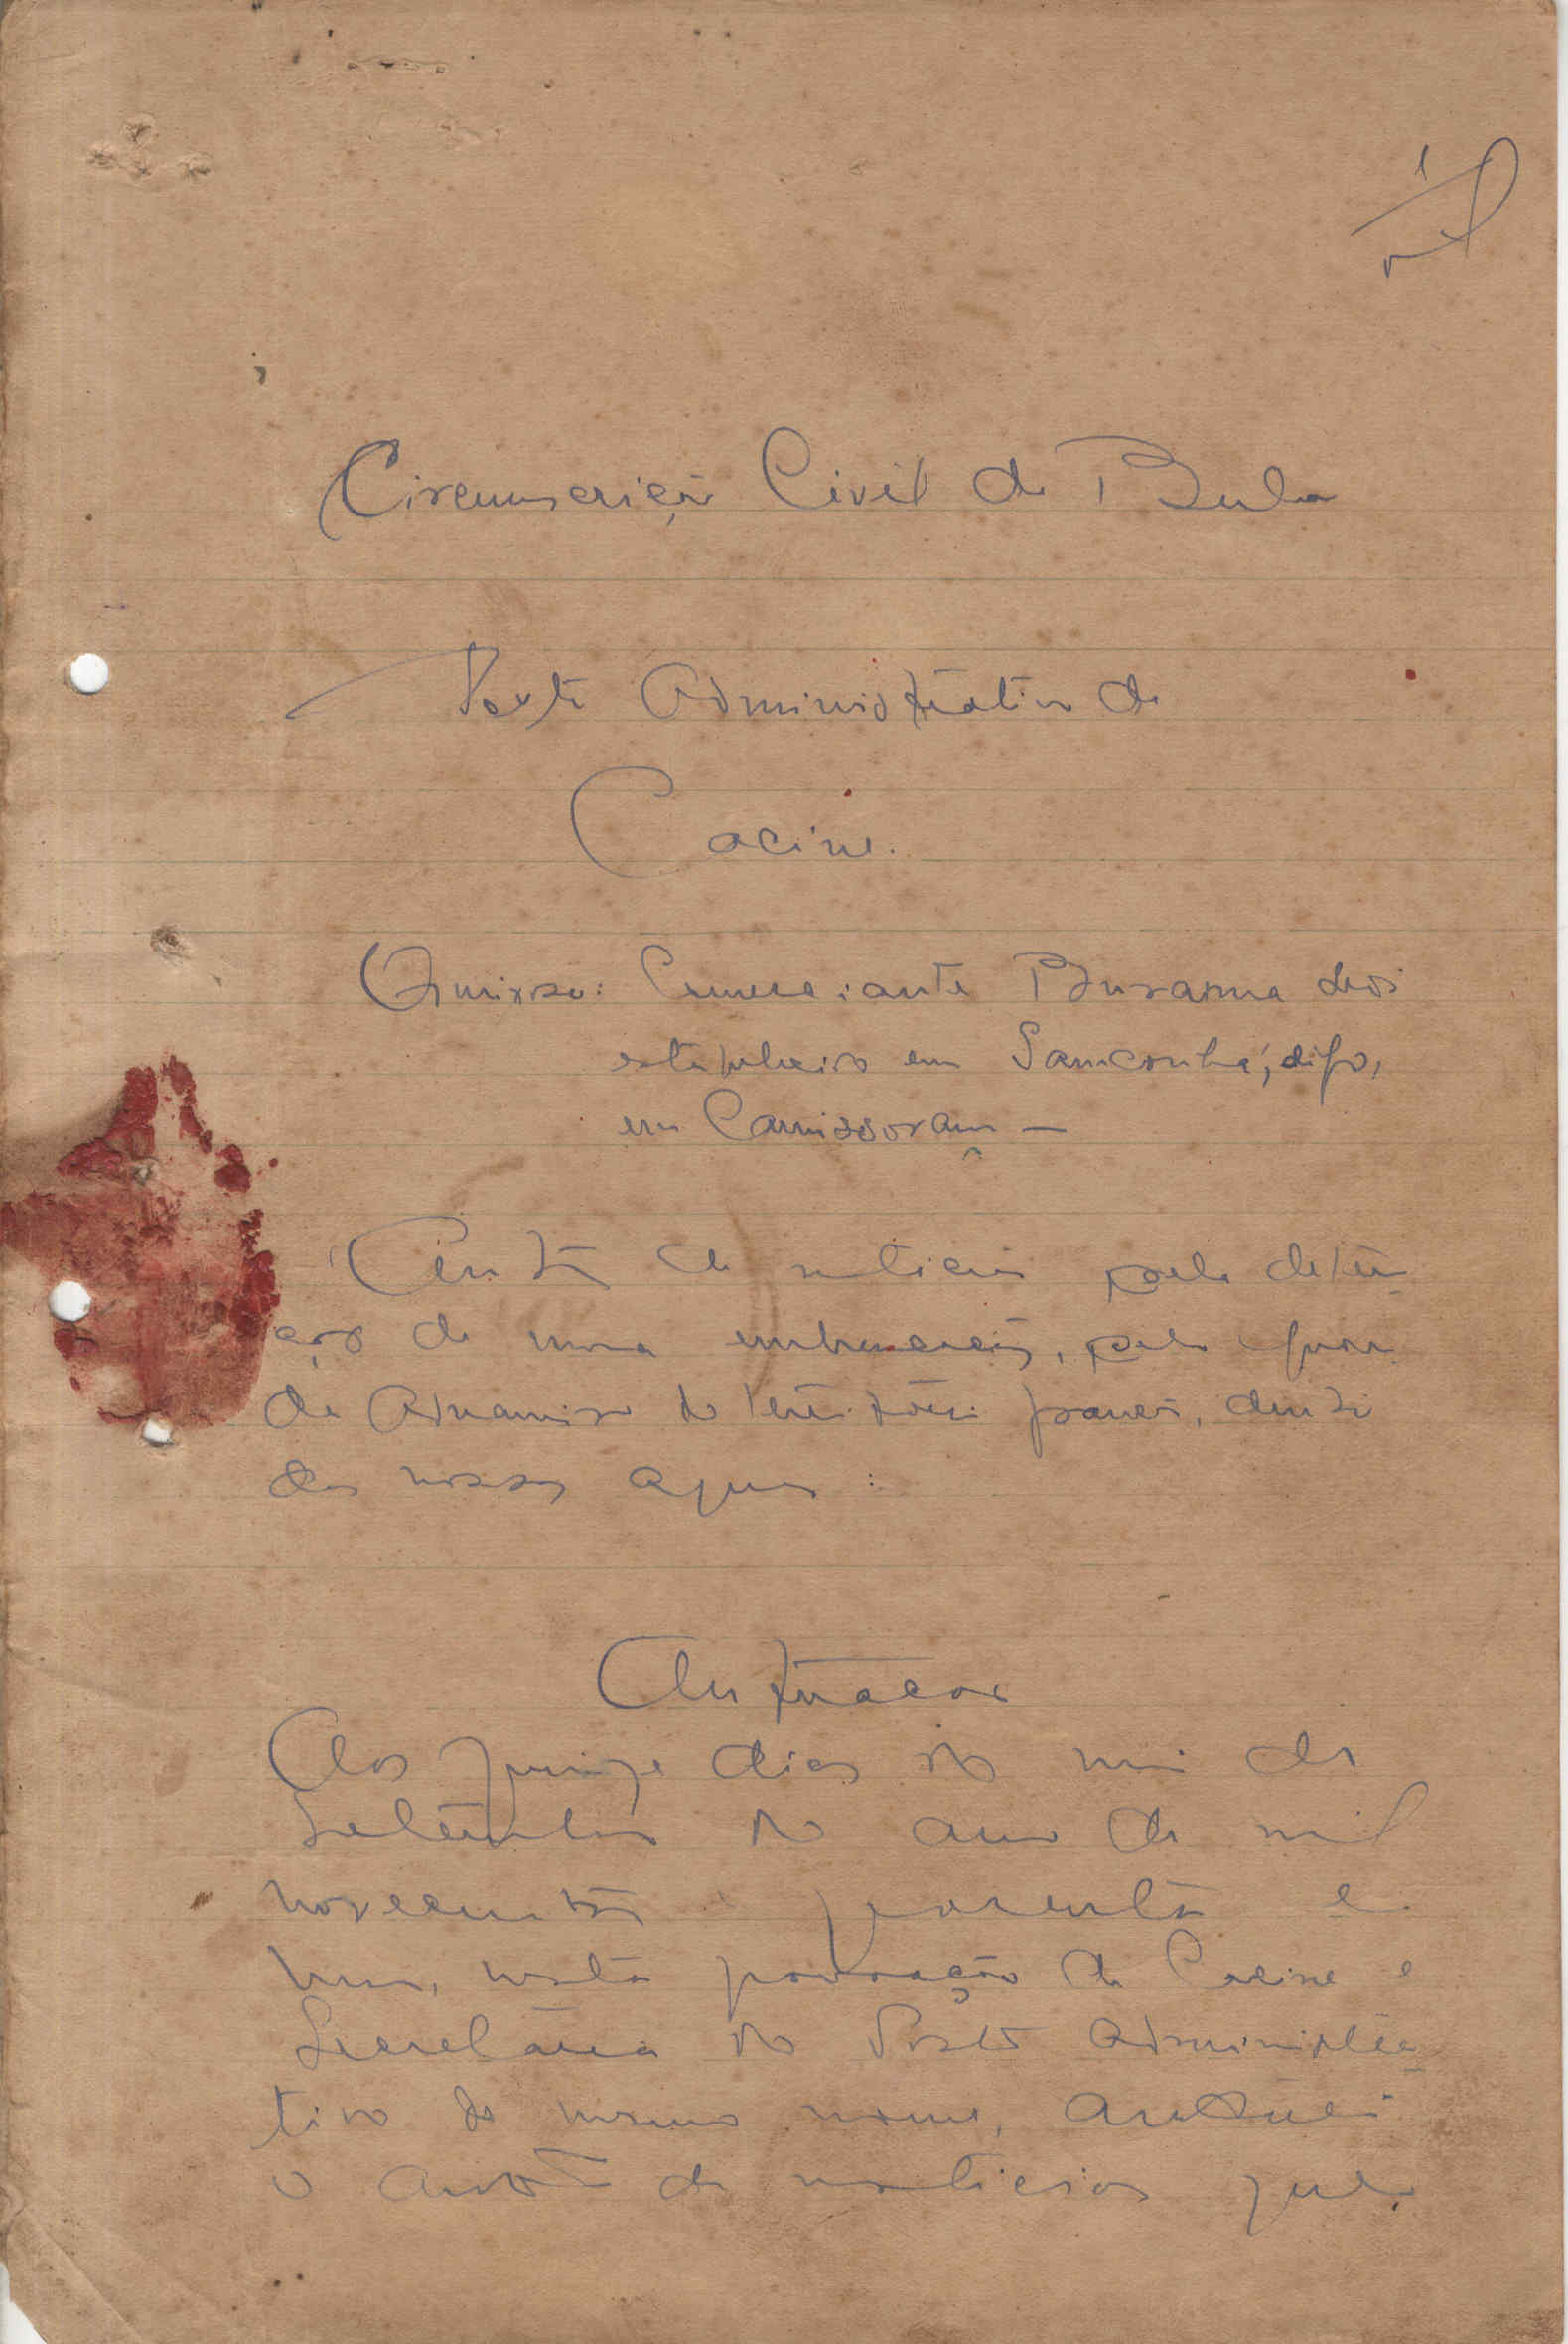 1
Circunscrição Civil de Buba
Posto Administrativo de
Cacine.
Comerciante
em Sanconhá, digo,
em Camissoram —
Auto de noticia pela deten-
ção de uma embarcação, pelo guar
da Aduaneiro do território francês, dentro
das nossas aguas:
Autuacao
Aos quinze dias do mês de
Setembro do ano de mil
novecentos quarenta e
um, nesta povoação de Cacine e
Secretaria do Posto Administra-
tivo do mesmo nome, autuei
o auto de noticias que